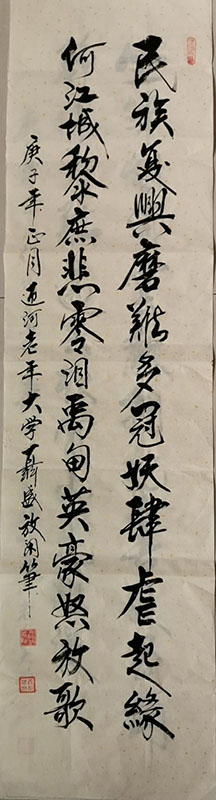 民族复興磨難多冠妖肆虐起緣
何江城黎庶悲零泪禹甸英豪怒放歌
庚子年正月通河老年大学聂盛放闲筆